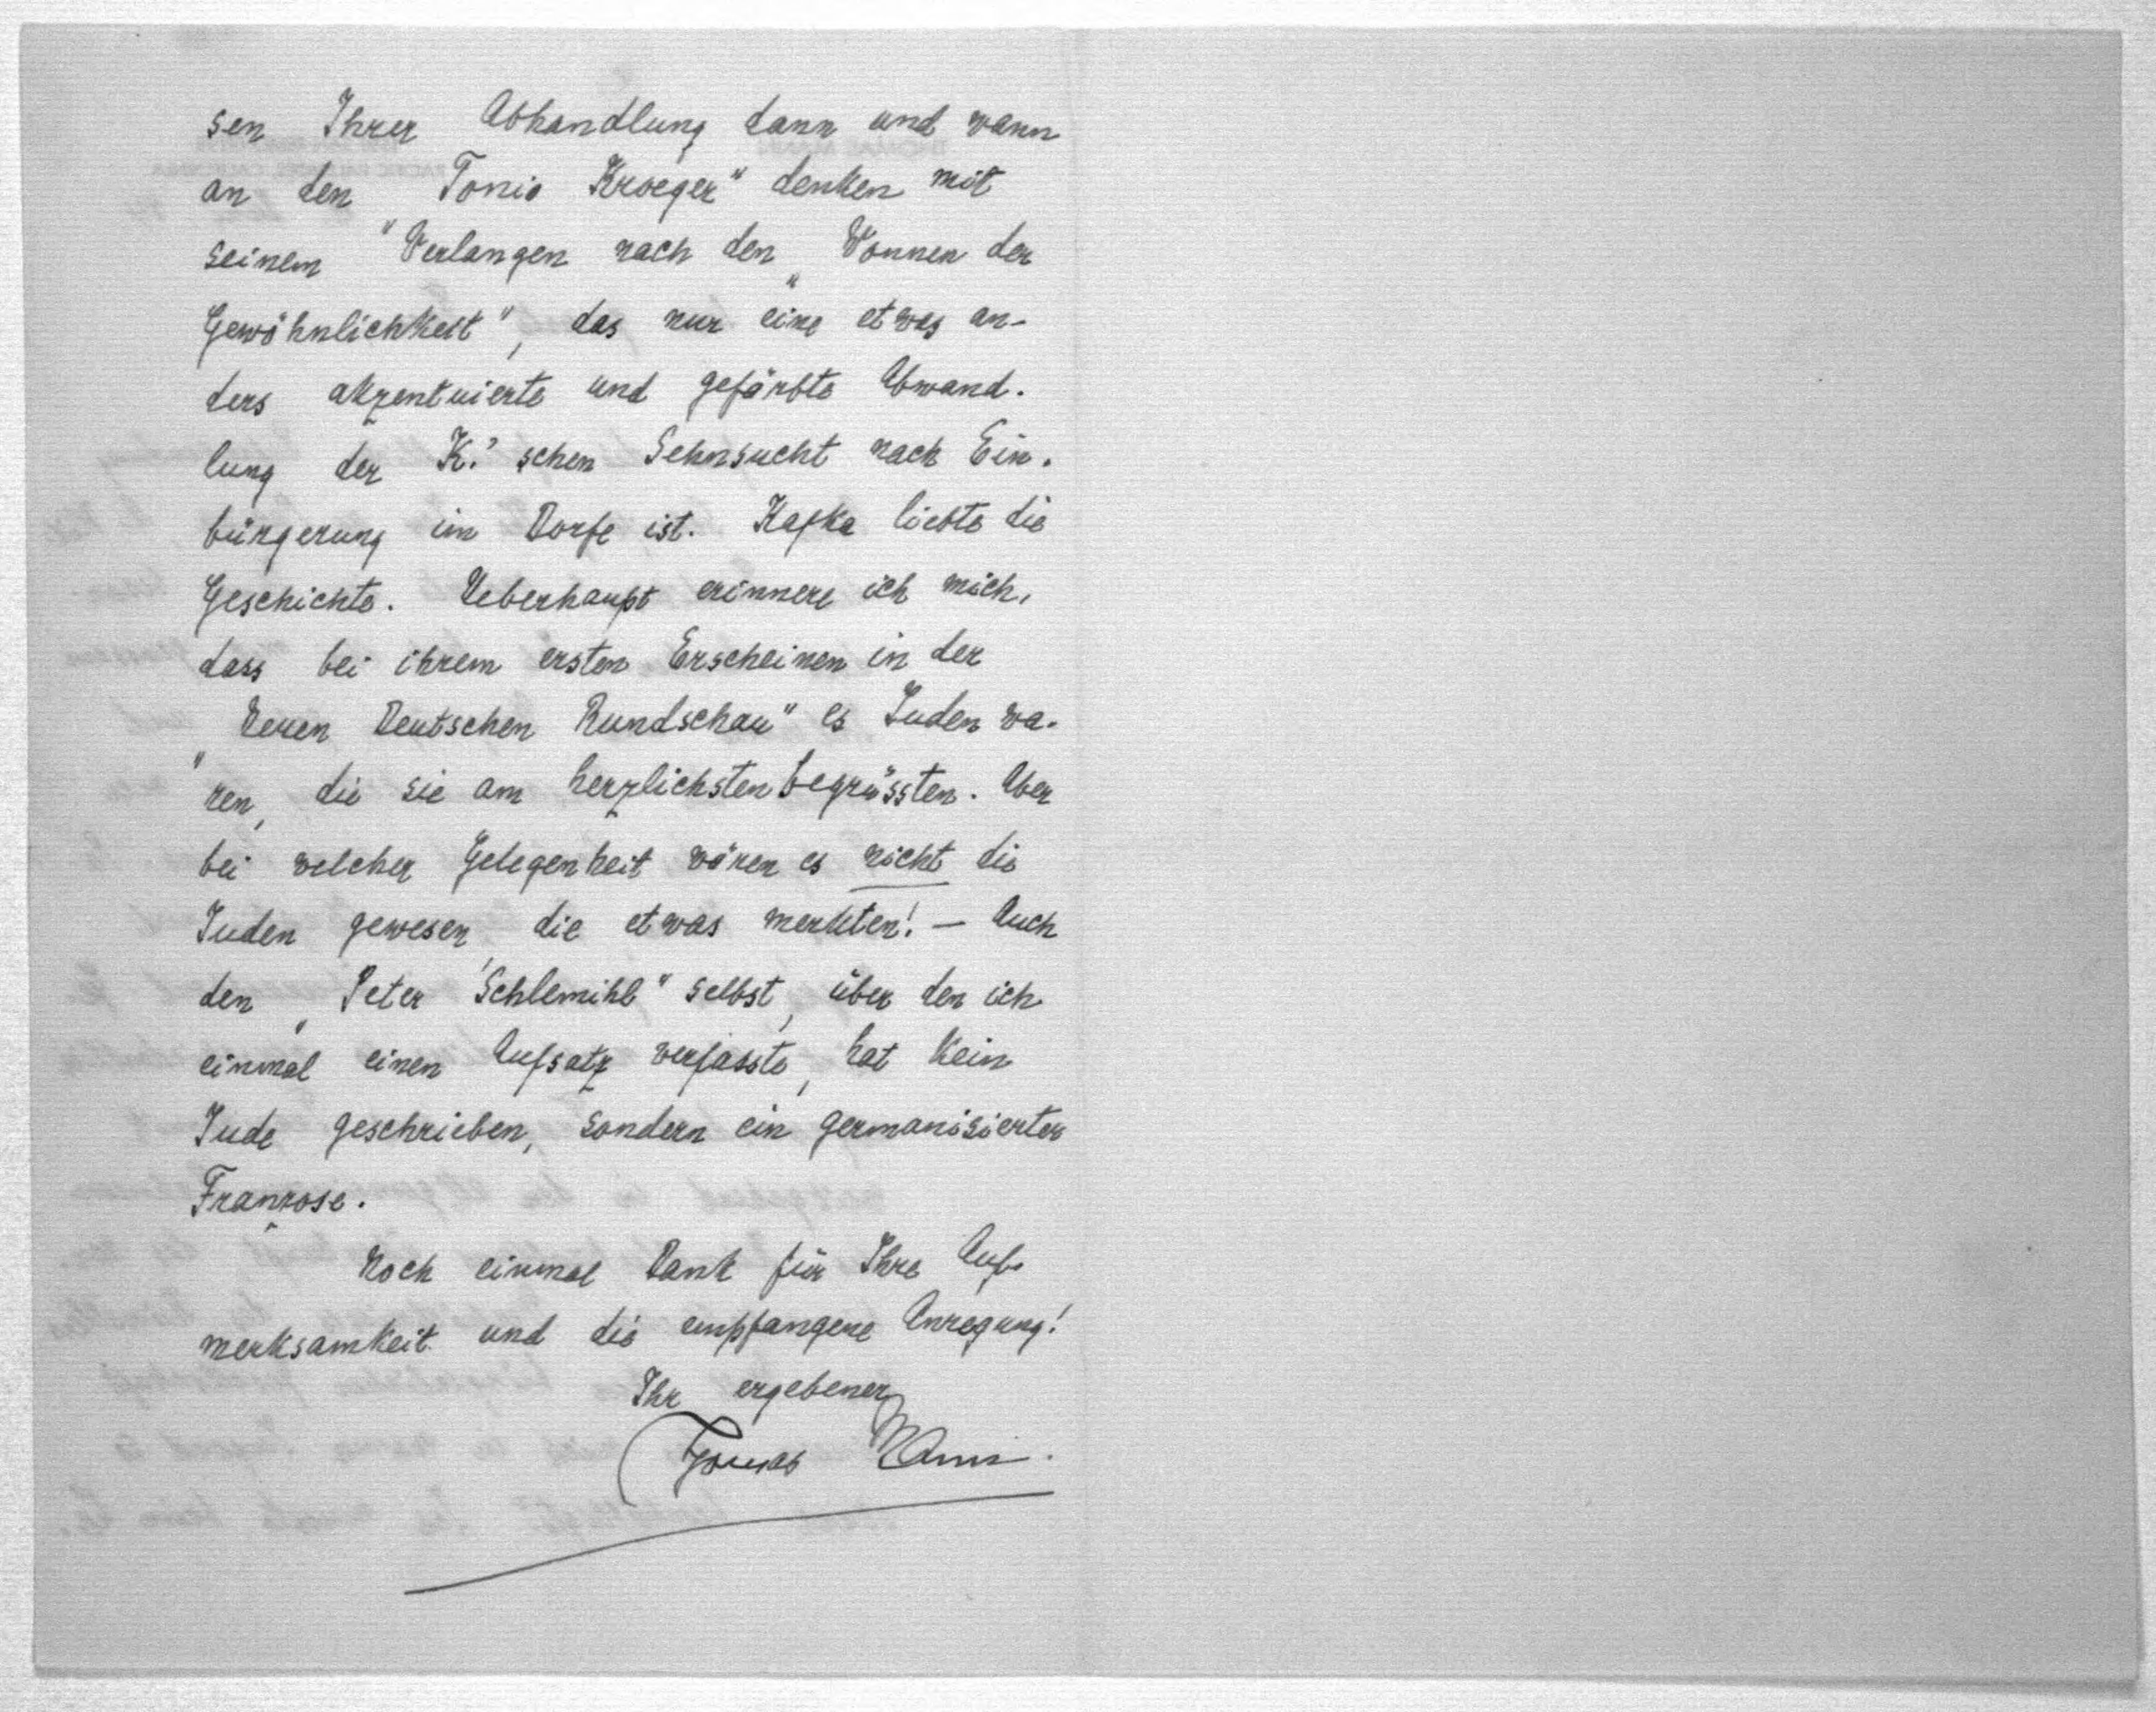 sen Ihrer Abhandlung dann und wann
an den „Tonio Kroeger" denken mit
seinem Verlangen nach den „Wonnen der
Gewöhnlichkeit", das nur eine etwas an-
ders akzentuierte und gefärbte Abwand-
lung der K.'schen Sehnsucht nach Ein-
bürgerung im Dorfe ist. Kafka liebte die
Geschichte. Ueberhaupt erinnere ich mich,
dass bei ihrem ersten Erscheinen in der
„Neuen Deutschen Rundschau" es Juden wa-
ren, die sie am herzlichsten begrüssten. Aber
bei welcher Gelegenheit wären es nicht die
Juden gewesen, die etwas merkten! — Auch
den „Peter Schlemihl" selbst, über den ich
einmal einen Aufsatz verfasste, hat kein
Jude geschrieben, sondern ein germanisierter
Franzose.
Noch einmal Dank für Ihre Auf-
merksamkeit und die empfangene Anregung!
Ihr ergebener
Thomas Mann.